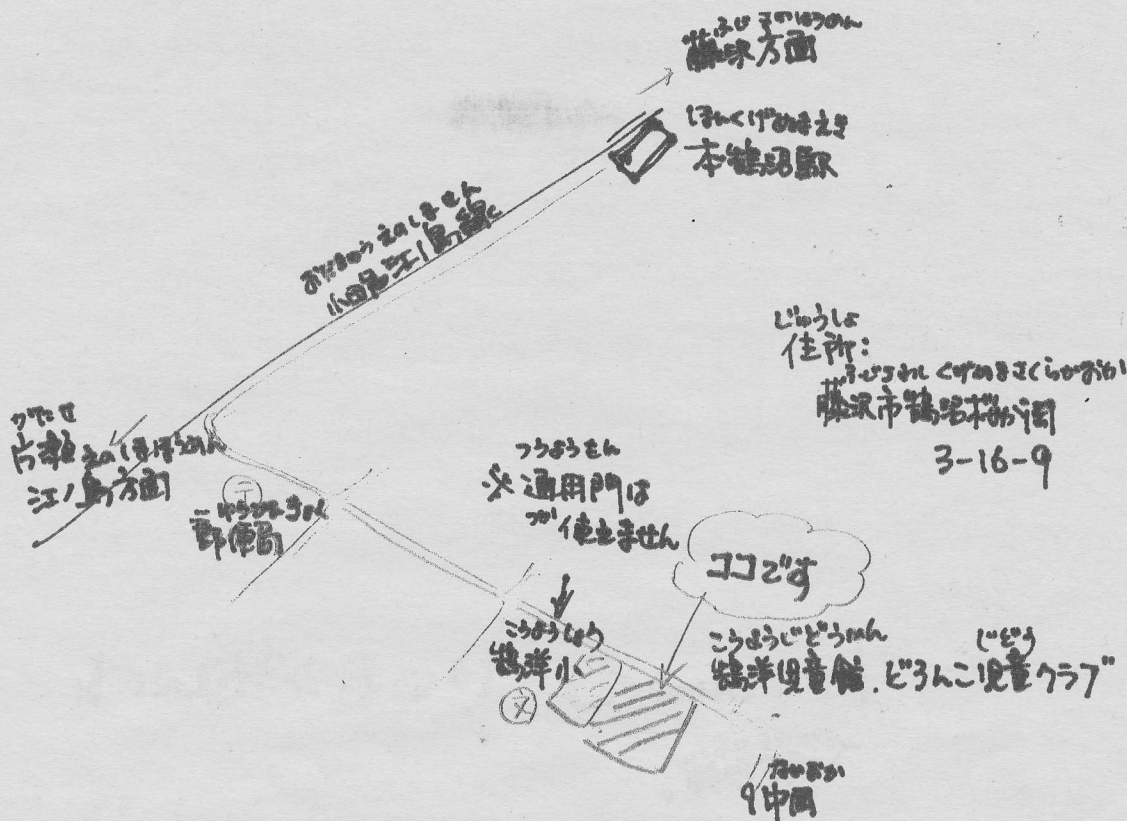 ふじさわほうめん
藤沢方面
ほんくげぬまえき
本鵠沼駅
おだきゅうえのしません
小田急江ノ島線
じゅうしょ
住所:
ふじさわしくげぬまさくらがおか
藤沢市鵠沼桜が岡
3-16-9
かたせ
片瀬えのしまほうめん
江ノ島方面
〒
ゆうびんきょく
郵便局
つうようもん
※通用門は
つか
使えません
ココです
こうようしょう
鵠洋小
文
こうようじどうかん じどう
鵠洋児童館.どろんこ児童クラブ
なかおか
中岡